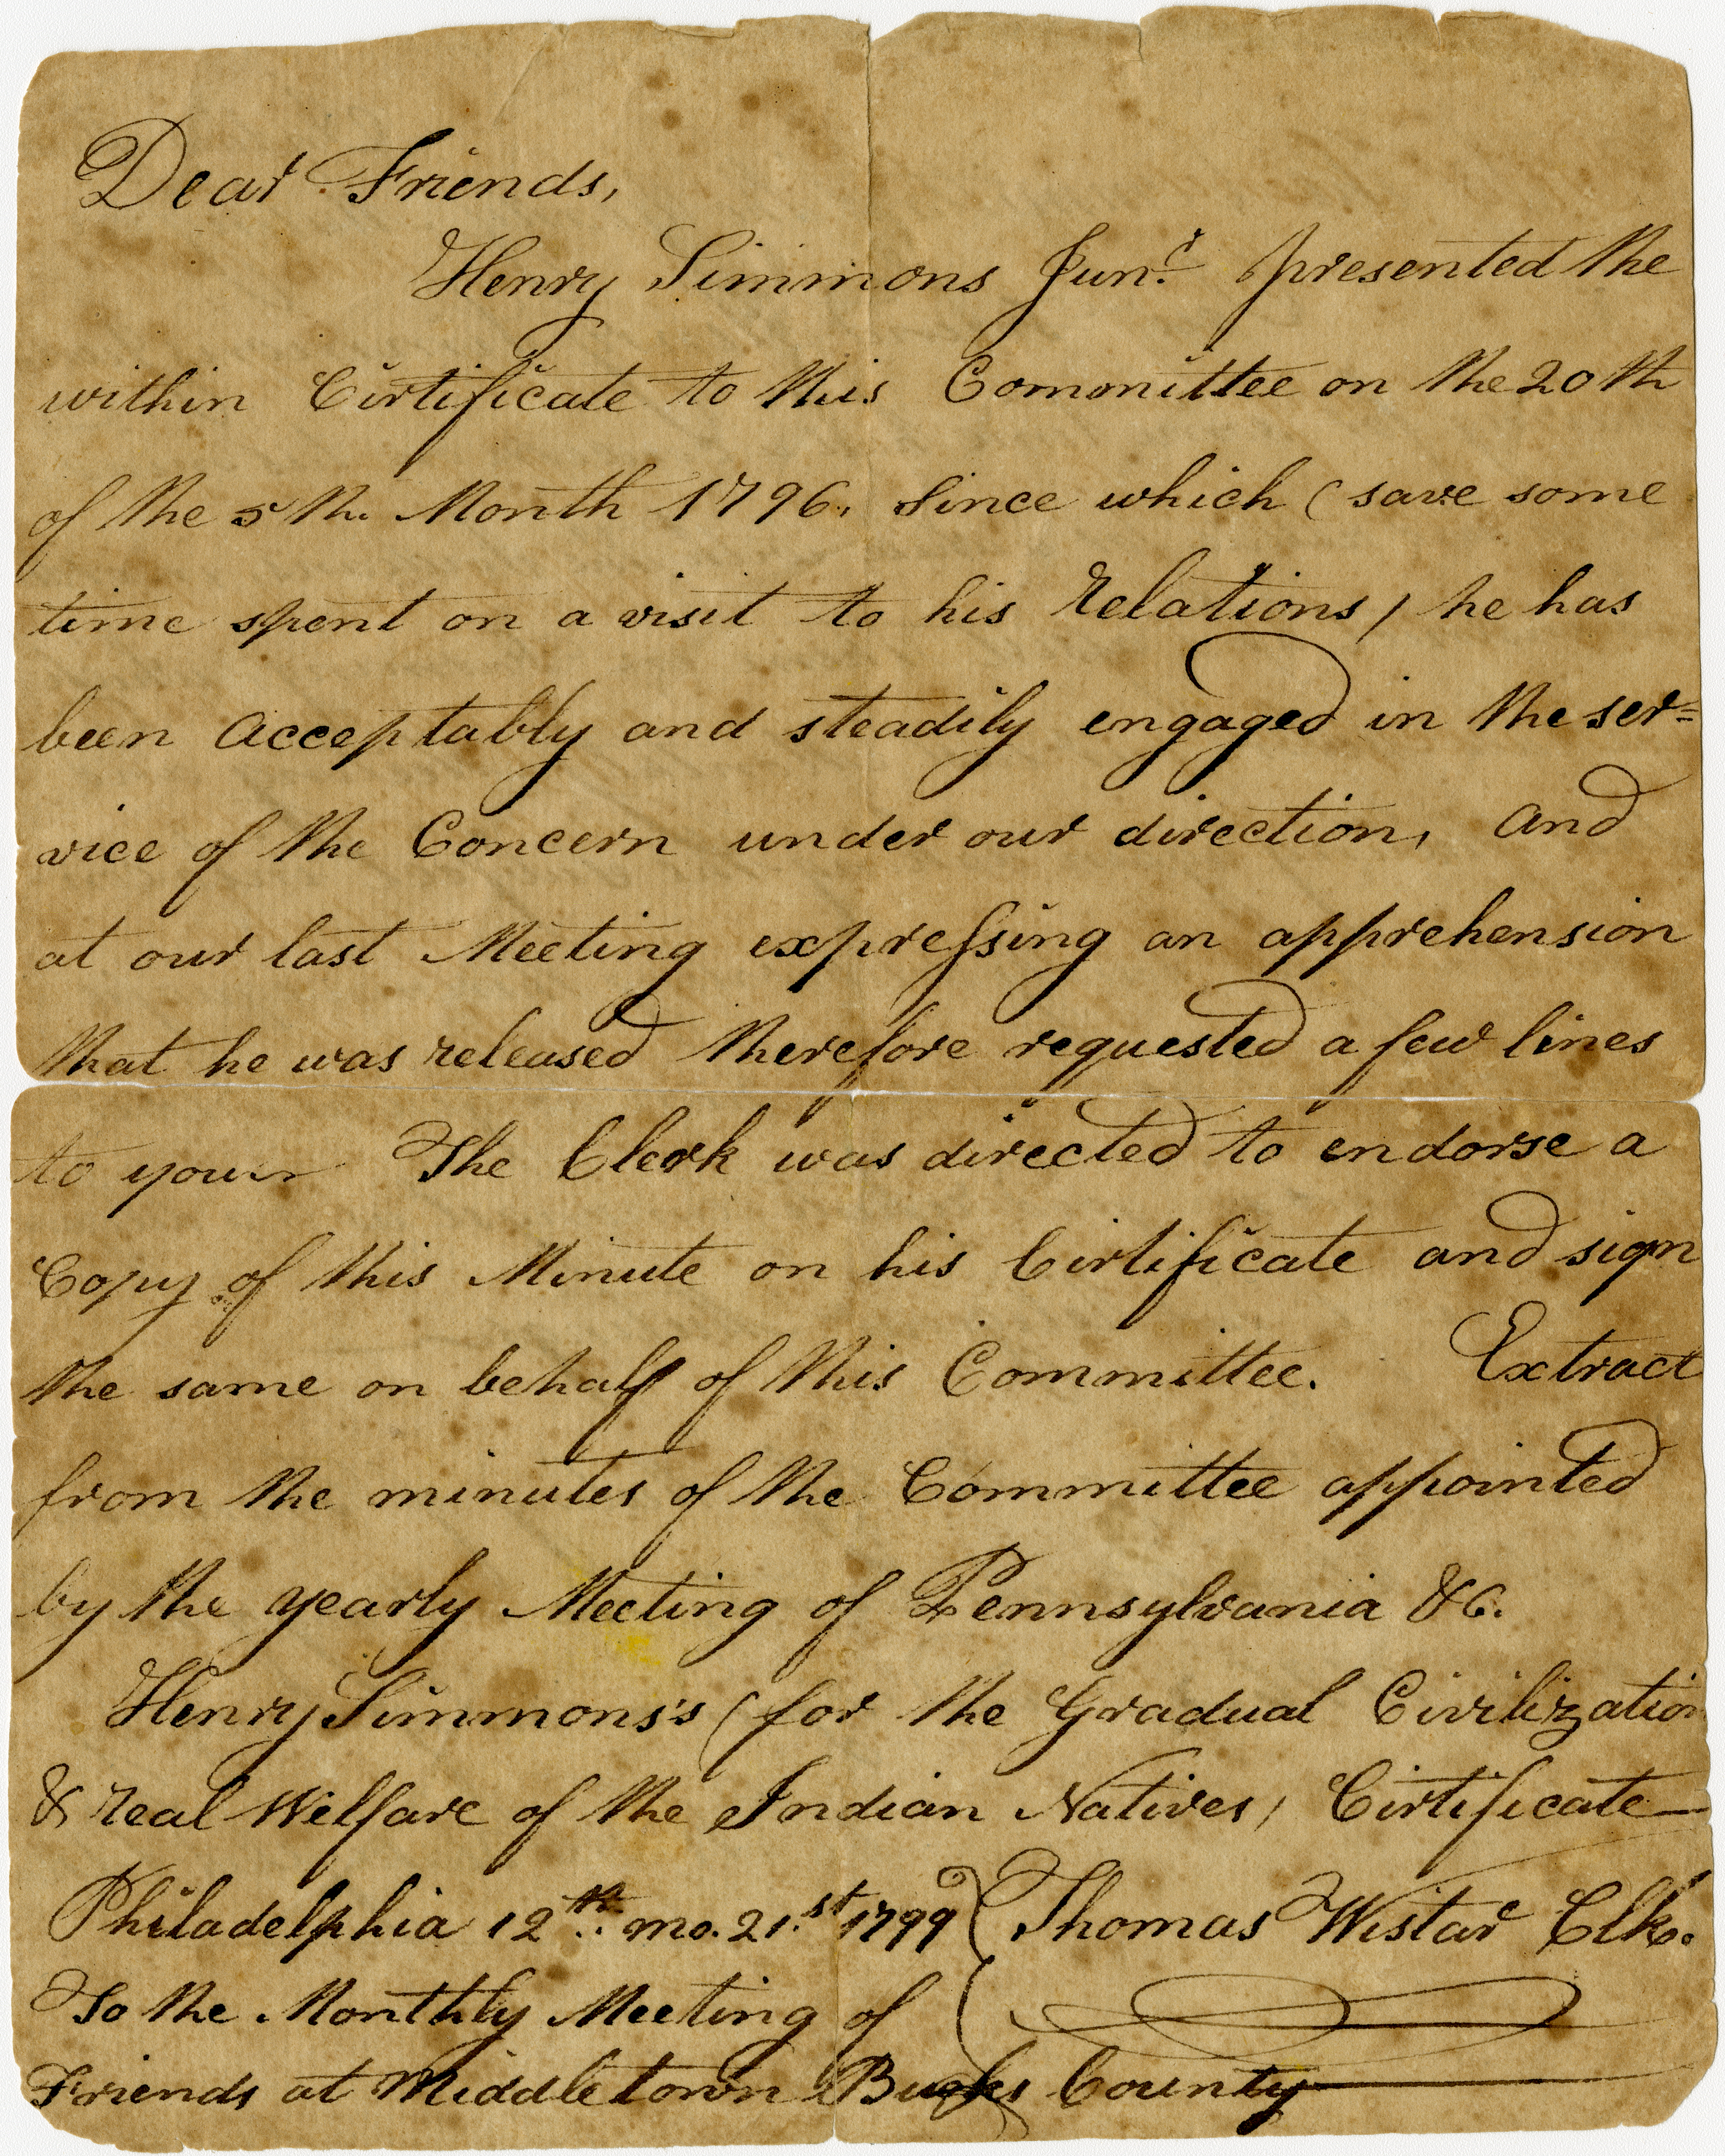 Dear Friends,
Henry Simmons Junr. presented the
within Cirtificate to this Committee on the 20th
of the 5th. Month 1796, Since which (save some
time spent on a visit to his Relations) he has
been Acceptably and steadily engaged in the ser=
vice of the Concern under our direction, And
at our last Meeting expressing an apprehension
that he was released therefore requested a few lines
to your The Clerk was directed to endorse a
Copy of this Minute on his Cirtificate and sign
the same on behalf of this Committee. Extract
from the minutes of the Committee appointed
by the yearly Meeting of Pennsylvania &C.
Henry Simmons's (for the Gradual Civilization
& Real Welfare of the Indian Natives) Cirtificate
Philadelphia 12th. mo. 21.st 1799 Thomas Wistar Clk.
To the Monthly Meeting of
Friends at Middletown Bucks County